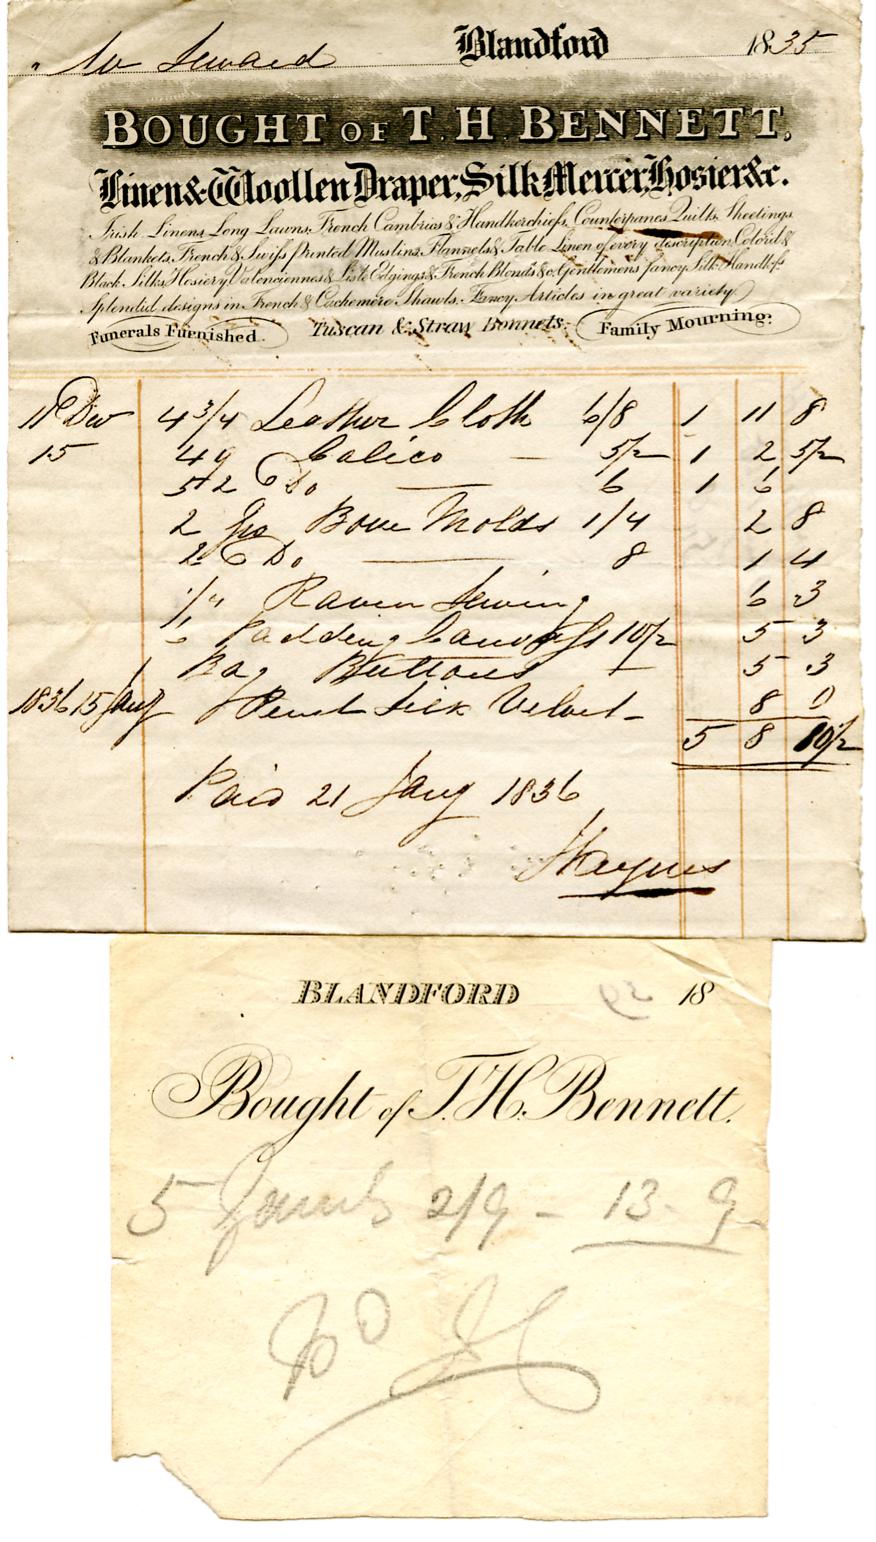 Mr Seward Blandford 1835
BOUGHT OF T. H. BENNETT,
Linen & Woollen Draper, Silk Mercer, Hosier &c.
Irish Linens, Long Lawns, French Cambrics & Handkerchiefs, Counterpanes, Quilts, Sheetings,
& Blankets, French & Swiss Printed Muslins, Flannels & Table Linen of every description, Color'd &
Black Silks, Hosiery, Valenciennes & Lisle Edgings & French Blonds &c. Gentlemens fancy Silk Handkfs
Splendid designs in French & Cachemere Shawls. Fancy Articles in great variety
Funerals Furnished. Tuscan & Straw Bonnets. Family Mourning:
11 Dec 4 3/4 Leather Cloth 6/8 1 11 8
15 49 Calico — 5½ 1 2 5½
52 Do — 6 1 6
2 Gro Bone Molds 1/4 2 8
2 Do — 8 1 4
1/4 Raven Sewing 6 3
6 Padding Canvass 10½ 5 3
Bag Buttons — 5 3
1836 15 Jany Silk Velvet 8 0
5 8 10½
Paid 21 Jany 1836
Haynes
BLANDFORD 39 18
Bought of T. H. Bennett.
5 2/9 - 13 - 9